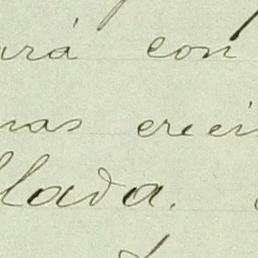 ará con
nas creci
llada.